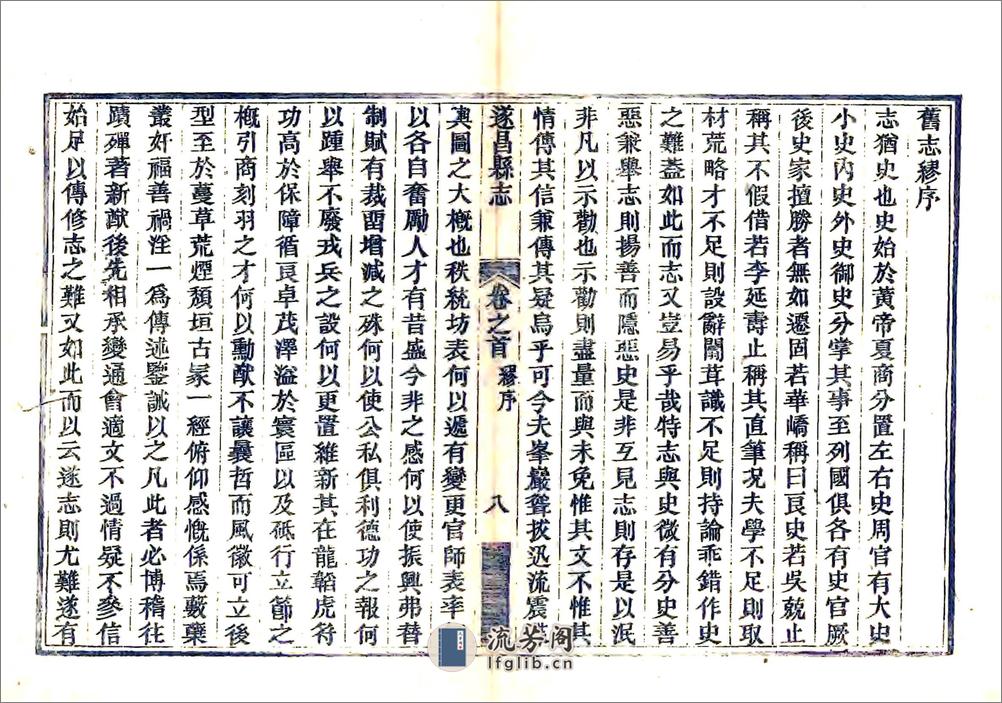 舊志繆序
志猶史也史始於黃帝夏商分置左右史周官有大史
小史內史外史御史分掌其事至列國俱各有史官厥
後史家擅勝者無如遷固若華嶠稱曰良史若吳兢止
稱其不假借若李延壽止稱其直筆况夫學不足則取
材荒略才不足則設辭闒茸識不足則持論乖錯作史
之難蓋如此而志又豈易乎哉特志與史微有分史善
惡兼舉志則揚善而隱惡史是非互見志則存是以泯
非凡以示勸也示勸則盡量而與未免惟其文不惟其
情傳其信兼傳其疑烏乎可令夫峯巖聳拔迅流震
遂昌縣志
卷之首
繆序
八
輿圖之大概也秩統坊表何以遞有變更官師表率
以各自奮勵人才有昔盛今非之感何以使振興弗替
制賦有裁畱增減之殊何以使公私俱利德功之報何
以踵舉不廢戎兵之設何以更置維新其在龍韜虎符
功高於保障循良卓茂澤溢於寰區以及砥行立節之
概引商刻羽之才何以勳猷不讓曩哲而風徽可立後
型至於蔓草荒煙頹垣古冢一經俯仰感慨係焉藪藥
叢奸福善禍淫一爲傳述鑒誡以之凡此者必博稽往
蹟殫著新猷後先相承變通會適文不過情疑不參信
始足以傳修志之難又如此而以云遂志則尤難遂有
流芳阁
lfglib.cn